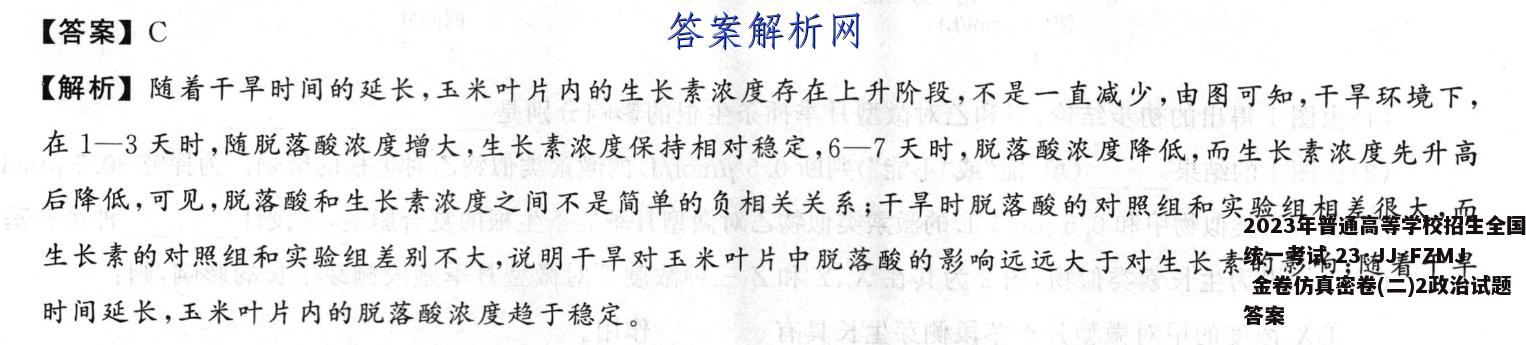 答案解析网
【答案】C
【解析】随着干旱时间的延长,玉米叶片内的生长素浓度存在上升阶段,不是一直减少,由图可知,干旱环境下,
在1—3天时,随脱落酸浓度增大,生长素浓度保持相对稳定,6—7天时,脱落酸浓度降低,而生长素浓度先升高
后降低,可见,脱落酸和生长素浓度之间不是简单的负相关关系;干旱时脱落酸的对照组和实验组相差很大,而
生长素的对照组和实验组差别不大,说明干旱对玉米叶片中脱落酸的影响远远大于对生长素的影响;随着干旱
时间延长,玉米叶片内的脱落酸浓度趋于稳定。
2023年普通高等学校招生全国
统一考试 23·JJ·FZMJ
金卷仿真密卷(二)2政治试题
答案